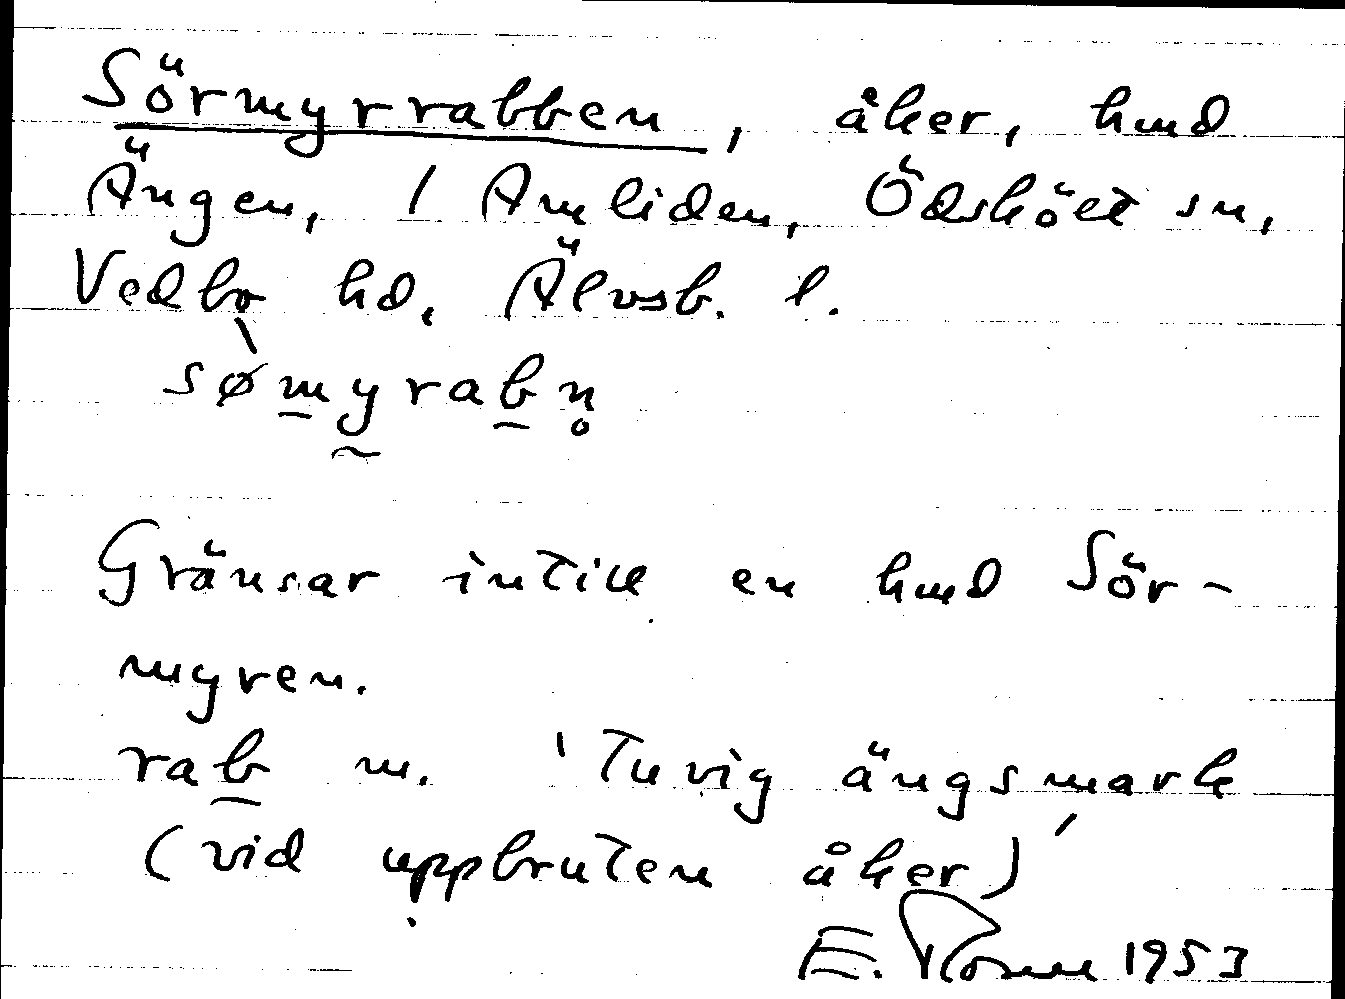 Sörmyrrabben, åker, hmd
Ängen, 1 Amliden, Ödskölt sn,
Vedbo hd, Älvsb. l.
sø̀m̲y̰rab̲n̥
Gränsar intill en hmd Sör-
myren.
rab̲ m. 'Tuvig ängsmark
(vid uppbruten åker)'
E. Rosell 1953